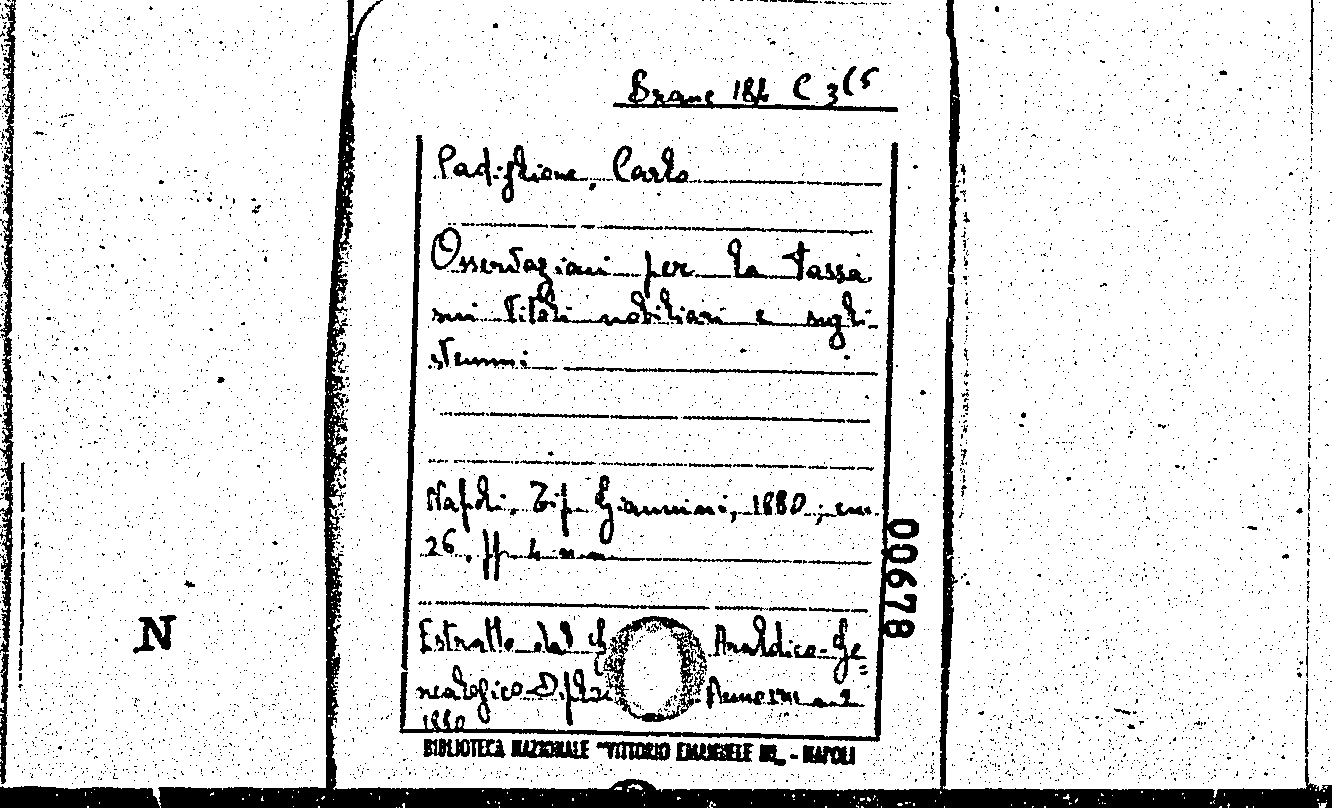 Branc 182 C 3(5
Padiglione, Carlo
Osservazioni per la tassa
sui titoli nobiliari e sugli
stemmi
Napoli, Tip. Giannini, 1880, cm.
26, pp. 4 nn
Estratto dal G Araldico-Ge
nealogico-Diplo Anno n. 2
1880
BIBLIOTECA NAZIONALE "VITTORIO EMANUELE III" - NAPOLI
00678
N